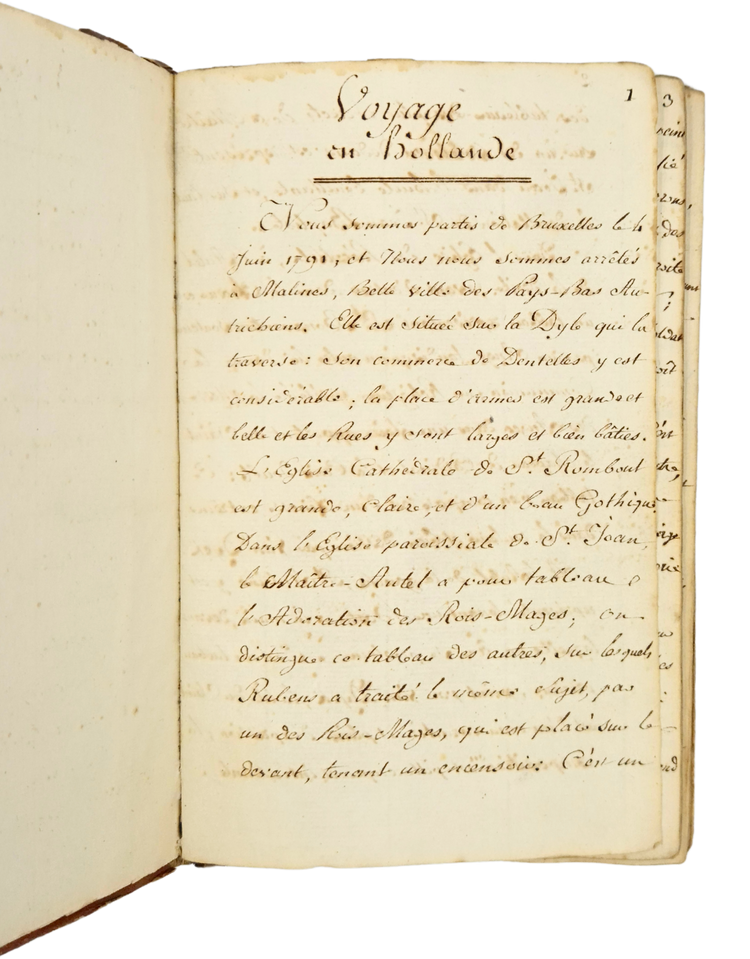 1
Voyage
en Hollande
Nous sommes partis de Bruxelles le 4
Juin 1791, et Nous nous sommes arrêtés
à Malines, Belle ville des Pays-Bas Au-
trichiens. Elle est située sur la Dyle qui la
traverse: son commerce de Dentelles y est
considérable; la place d'armes est grande et
belle et les Rues y sont larges et bien bâties.
L'Eglise Cathédrale de St. Rombout
est grande, claire, et d'un beau Gothique.
Dans l'Eglise paroissiale de St. Jean,
le Maître-Autel a pour tableau
l'Adoration des Rois-Mages; on
distingue ce tableau des autres, sur lesquels
Rubens a traité le même sujet, par
un des Rois-Mages, qui est placé sur le
devant, tenant un encensoir. C'est un
3